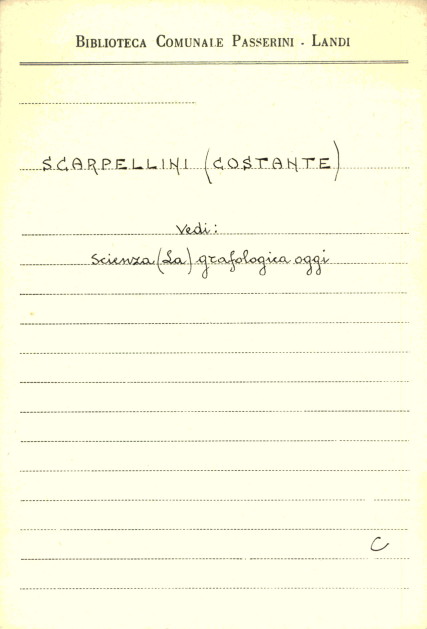 BIBLIOTECA COMUNALE PASSERINI - LANDI
SCARPELLINI (COSTANTE)
Vedi:
Scienza (La) grafologica oggi
C